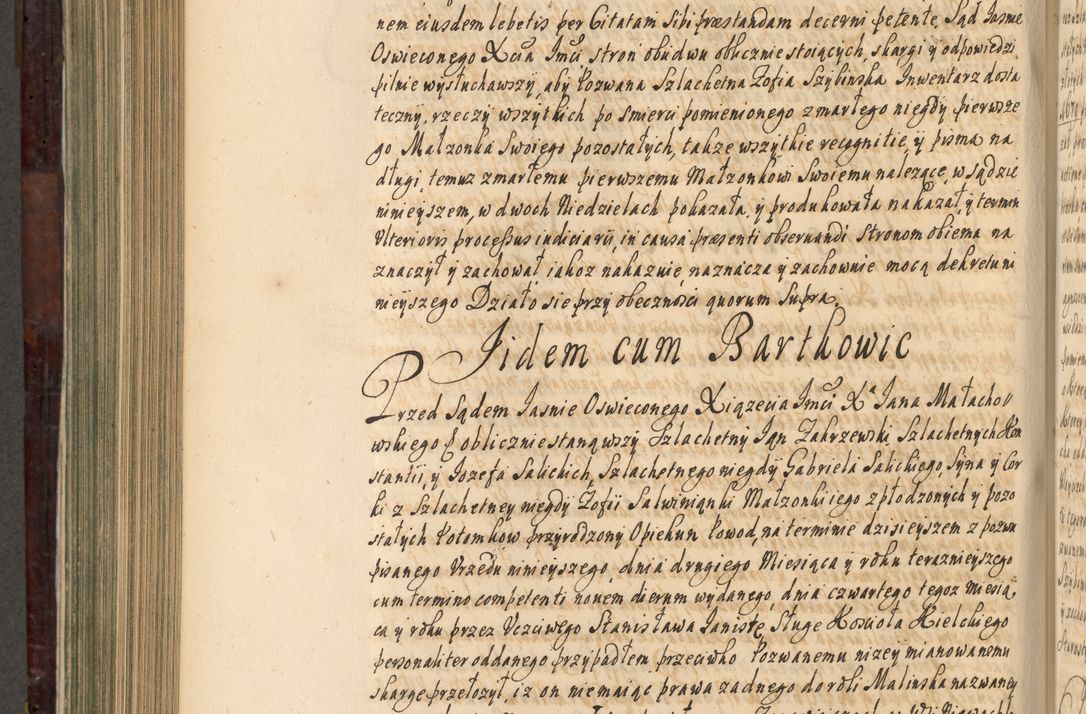 nem eiusdem lebetis per Citatam Sibi præstandam decerni petente, Sąd Iasnie
Oswieconego Xcia Imci, stron obudwu oblicznie stoiących, skargi y odpowiedzi
pilnie wysłuchawszy, aby Pozwana Szlachetna Zofia Szybinska Inwentarz dosta
teczny, rzeczy wszytkich po smierci pomienionego zmarłego niegdy pierwsze
go Małzonka Swoiego pozostałych, także wszytkie recognitie, y pisma na
długi, temuz zmarłemu pierwszemu Małzonkowi Swoiemu nalezące, w sądzie
ninieyszem, w dwoch Niedzielach pokazała, y produkowała nakazał, y termin
Ulterioris processus iudiciarij, in causa præsenti observandi Stronom obiema na
znaczył y zachował, iakoz nakazuie, naznacza y zachowuie mocą dekretu ni
nieyszego Działo sie przy obecznosci quorum Supra.
Jidem cum Bartkowic
Przed Sądem Iasnie Oswieconego Xiązecia Imci Xa Iana Małacho
wskiego & oblicznie stanąwszy Szlachetny Iąn Zakrzewski, Szlachetnych Kon
stantii, y Iozefa Salickich, Szlachetnego niegdy Gabriela Salickiego, Syna y Cor
ki z Szlachetney niegdy Zofii Salwinianki Małzonki iego zpłodzonych y pozo
stałych Potomkow przyrodzony Opiekun Powod, na terminie dzisieyszem z pozwu
pisanego Urzedu ninieyszego, dnia drugiego Miesiąca y roku teraznieyszego
cum termino competenti novem dierum wydanego, dnia czwartego tegoz miesią
ca y roku przez Uczciwego Stanisława Ianiste, Sługe Kosciola Kielckiego
personaliter oddanego przypadłem przeciwko Pozwanemu nizey mianowanemu
skarge przełozył, iz on niemaiąc prawa zadnego do roli Malinska nazwaney